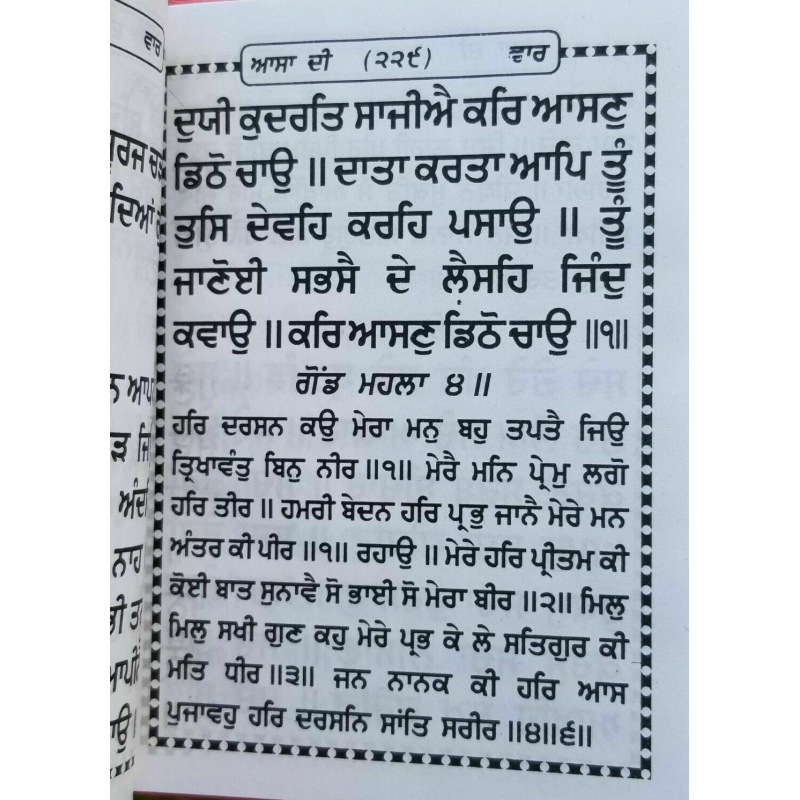 ਵਾਰ
ਆਸਾ ਦੀ (੨੨੬) ਵਾਰ
ਦੁਯੀ ਕੁਦਰਤਿ ਸਾਜੀਐ ਕਰਿ ਆਸਣੁ
ਡਿਠੋ ਚਾਉ ॥ ਦਾਤਾ ਕਰਤਾ ਆਪਿ ਤੂੰ
ਤੁਸਿ ਦੇਵਹਿ ਕਰਹਿ ਪਸਾਉ ॥ ਤੂੰ
ਜਾਣੋਈ ਸਭਸੈ ਦੇ ਲੈਸਹਿ ਜਿੰਦੁ
ਕਵਾਉ ॥ ਕਰਿ ਆਸਣੁ ਡਿਠੋ ਚਾਉ ॥੧॥
ਗੋਂਡ ਮਹਲਾ ੪ ॥
ਹਰਿ ਦਰਸਨ ਕਉ ਮੇਰਾ ਮਨੁ ਬਹੁ ਤਪਤੈ ਜਿਉ
ਤ੍ਰਿਖਾਵੰਤੁ ਬਿਨੁ ਨੀਰ ॥੧॥ ਮੇਰੈ ਮਨਿ ਪ੍ਰੇਮੁ ਲਗੋ
ਹਰਿ ਤੀਰ ॥ ਹਮਰੀ ਬੇਦਨ ਹਰਿ ਪ੍ਰਭੁ ਜਾਨੈ ਮੇਰੇ ਮਨ
ਅੰਤਰ ਕੀ ਪੀਰ ॥੧॥ ਰਹਾਉ ॥ ਮੇਰੇ ਹਰਿ ਪ੍ਰੀਤਮ ਕੀ
ਕੋਈ ਬਾਤ ਸੁਨਾਵੈ ਸੋ ਭਾਈ ਸੋ ਮੇਰਾ ਬੀਰ ॥੨॥ ਮਿਲੁ
ਮਿਲੁ ਸਖੀ ਗੁਣ ਕਹੁ ਮੇਰੇ ਪ੍ਰਭ ਕੇ ਲੇ ਸਤਿਗੁਰ ਕੀ
ਮਤਿ ਧੀਰ ॥੩॥ ਜਨ ਨਾਨਕ ਕੀ ਹਰਿ ਆਸ
ਪੁਜਾਵਹੁ ਹਰਿ ਦਰਸਨਿ ਸਾਂਤਿ ਸਰੀਰ ॥੪॥੬॥